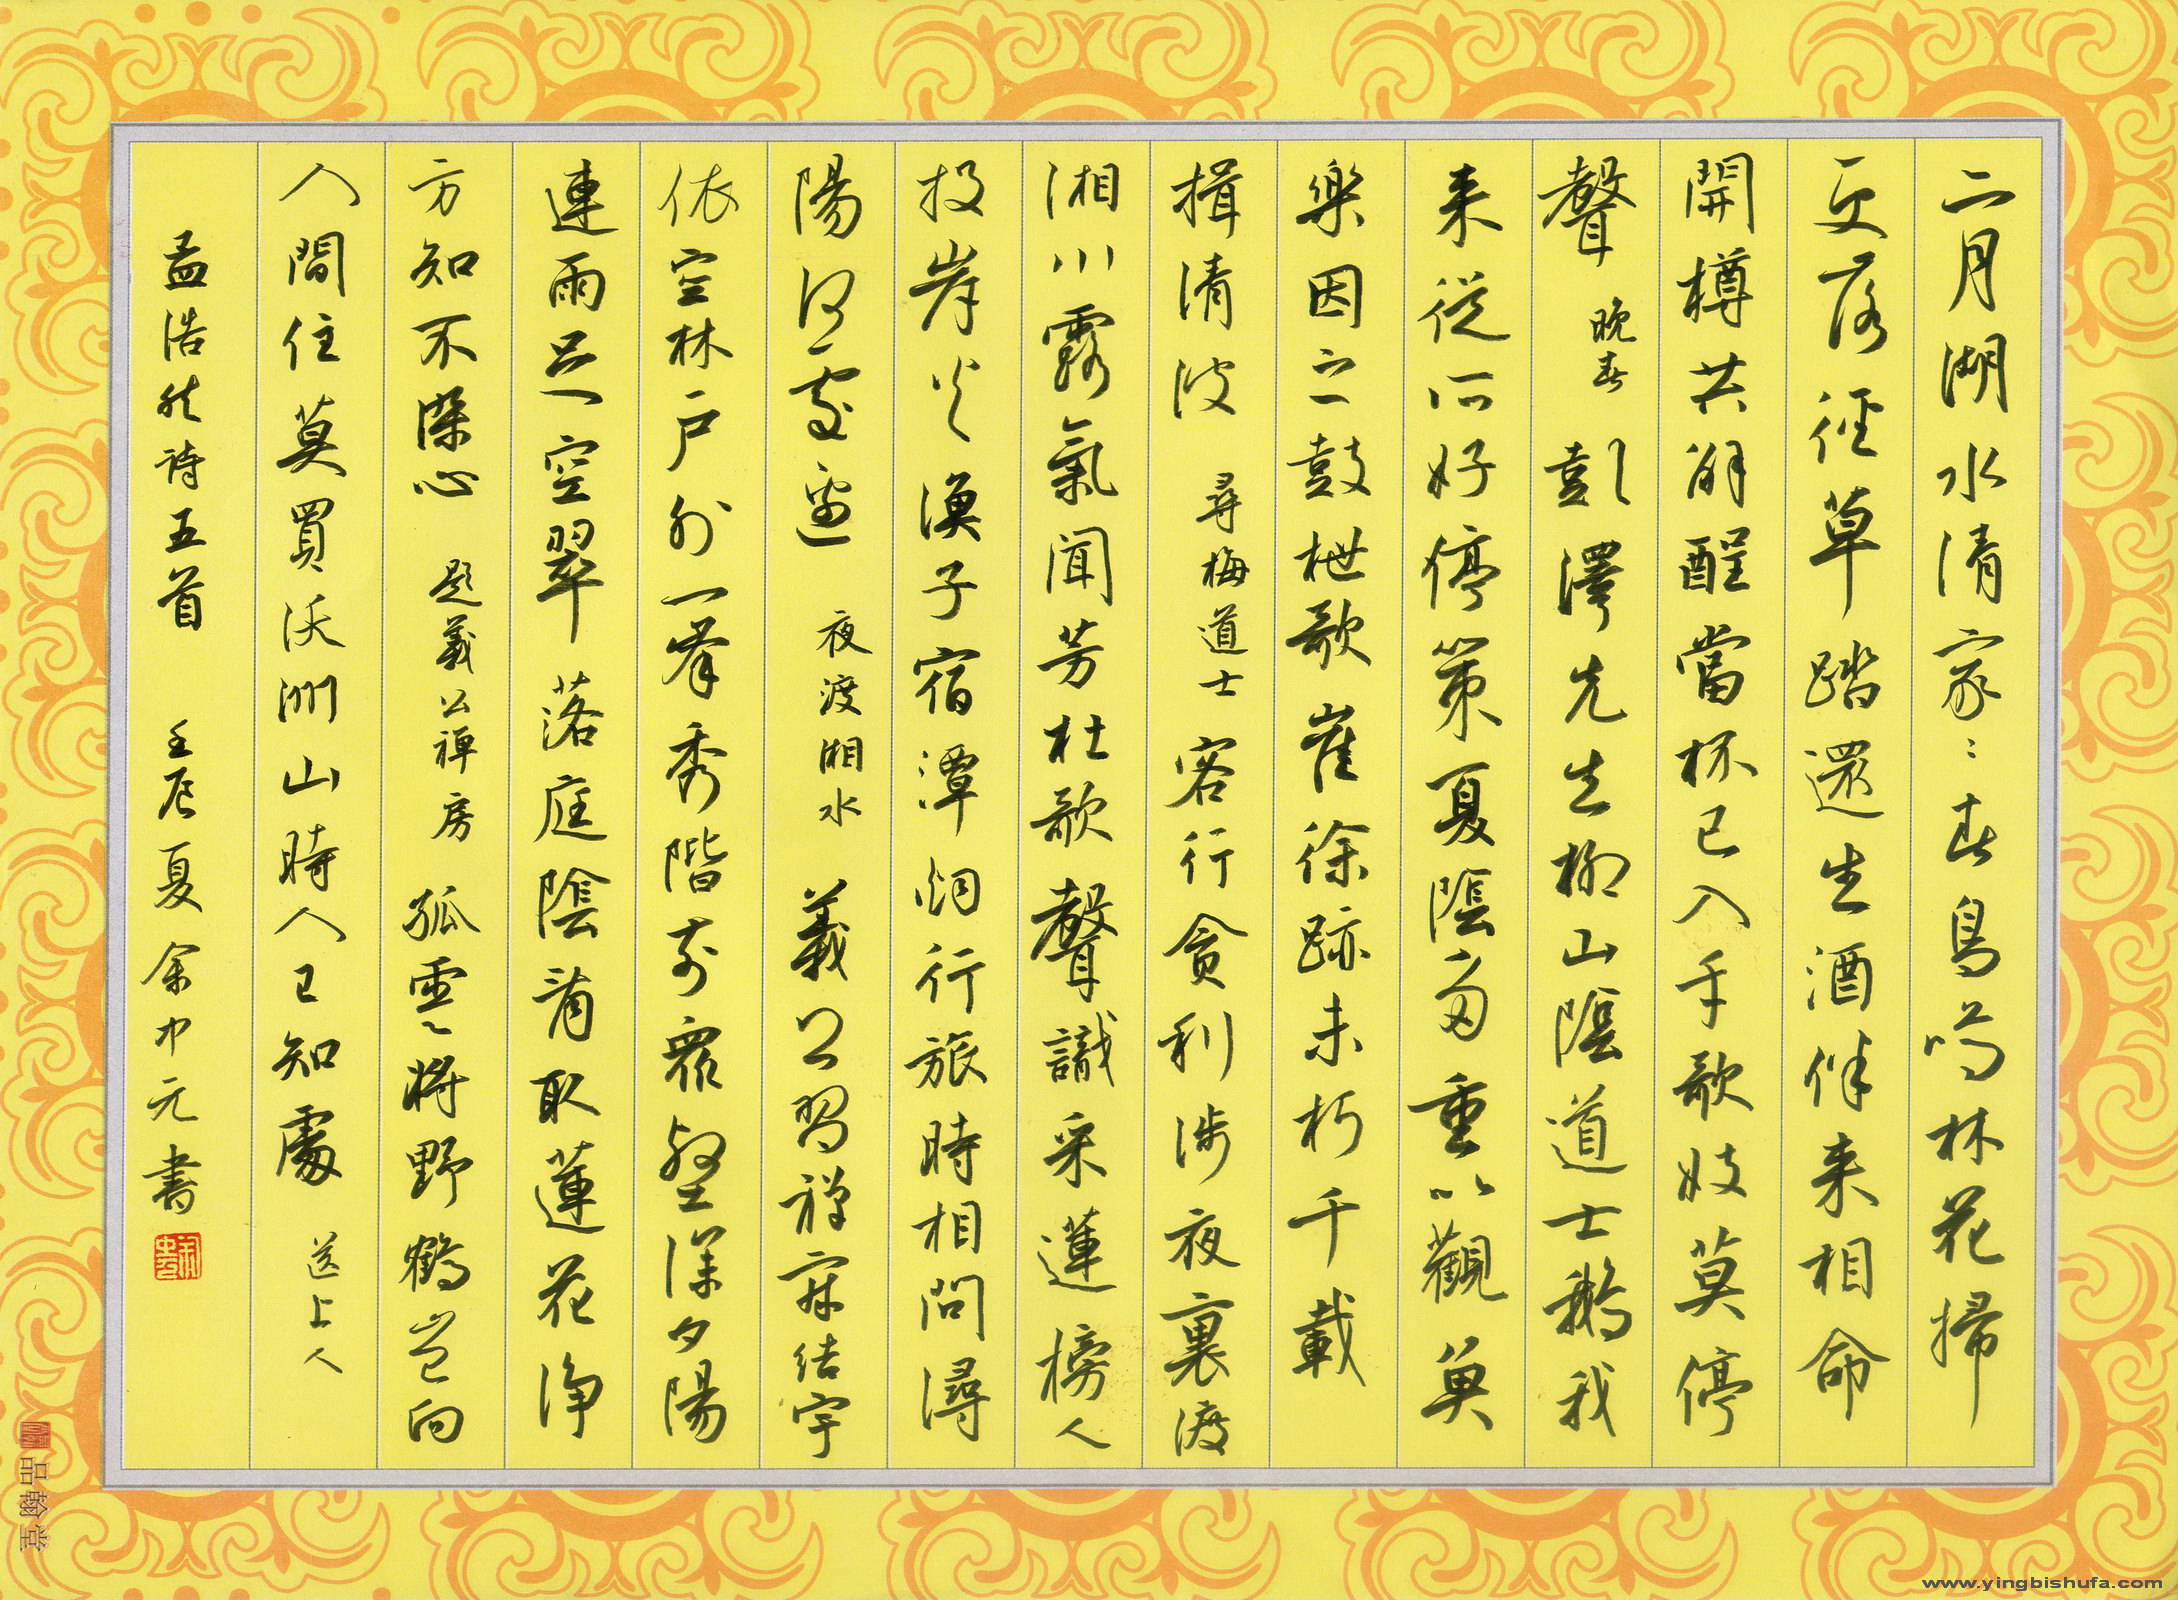 二月湖水清家〻春鳥鳴林花掃
更落徑草踏還生酒伴来相命
開樽共解酲當杯已入手歌妓莫停
聲 晚春 彭澤先生柳山陰道士鵝我
来從所好停策夏陰多重以觀魚
樂因之鼓枻歌崔徐跡未朽千載
揖清波 尋梅道士 客行貪利涉夜裏渡
湘川露氣聞芳杜歌聲識采蓮榜人
投岸火漁子宿潭烟行旅時相問潯
陽何處邊 夜渡湘水 義公習禪寂結宇
依空林戶外一峯秀階前衆壑深夕陽
連雨足空翠落庭陰看取蓮花淨
方知不染心 題義公禪房 孤雲將野鶴豈向
人間住莫買沃洲山時人已知處 送上人
孟浩然詩五首 壬辰夏余中元書
品翰堂
www.yingbishufa.com